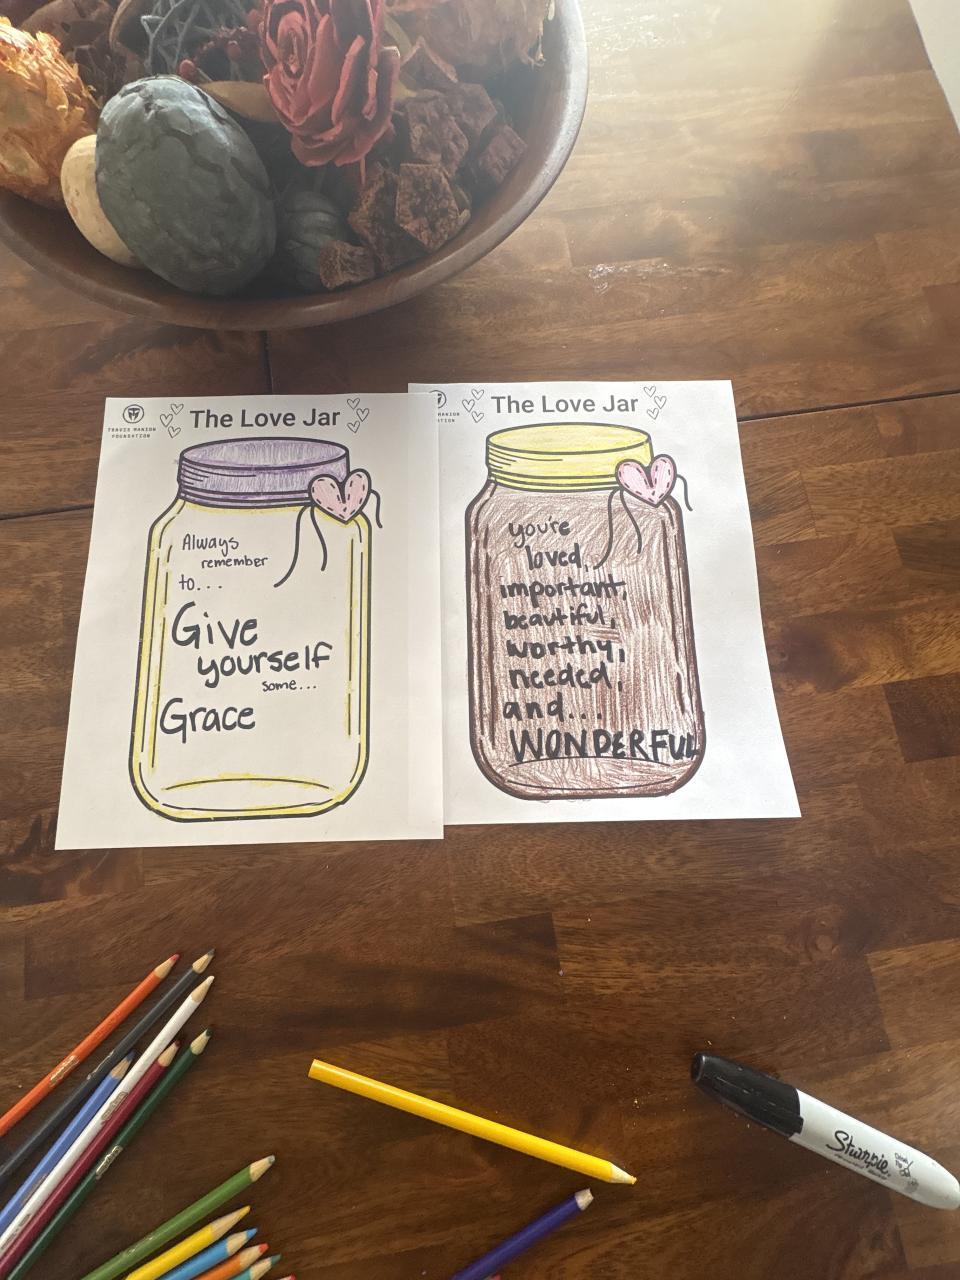 TRAVIS MANION
FOUNDATION
The Love Jar
Always
remember
to...
Give
yourself
some...
Grace
MANION
The Love Jar
you're
loved,
important,
beautiful,
worthy,
needed,
and...
WONDERFUL
Sharpie